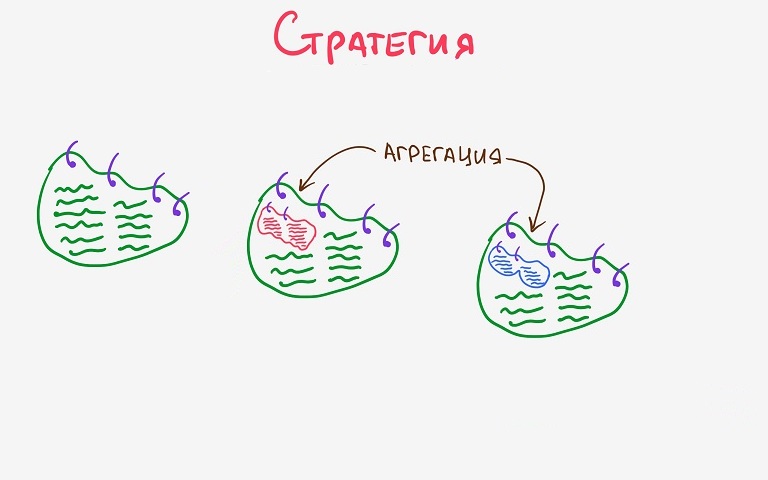 Стратегия
Агрегация